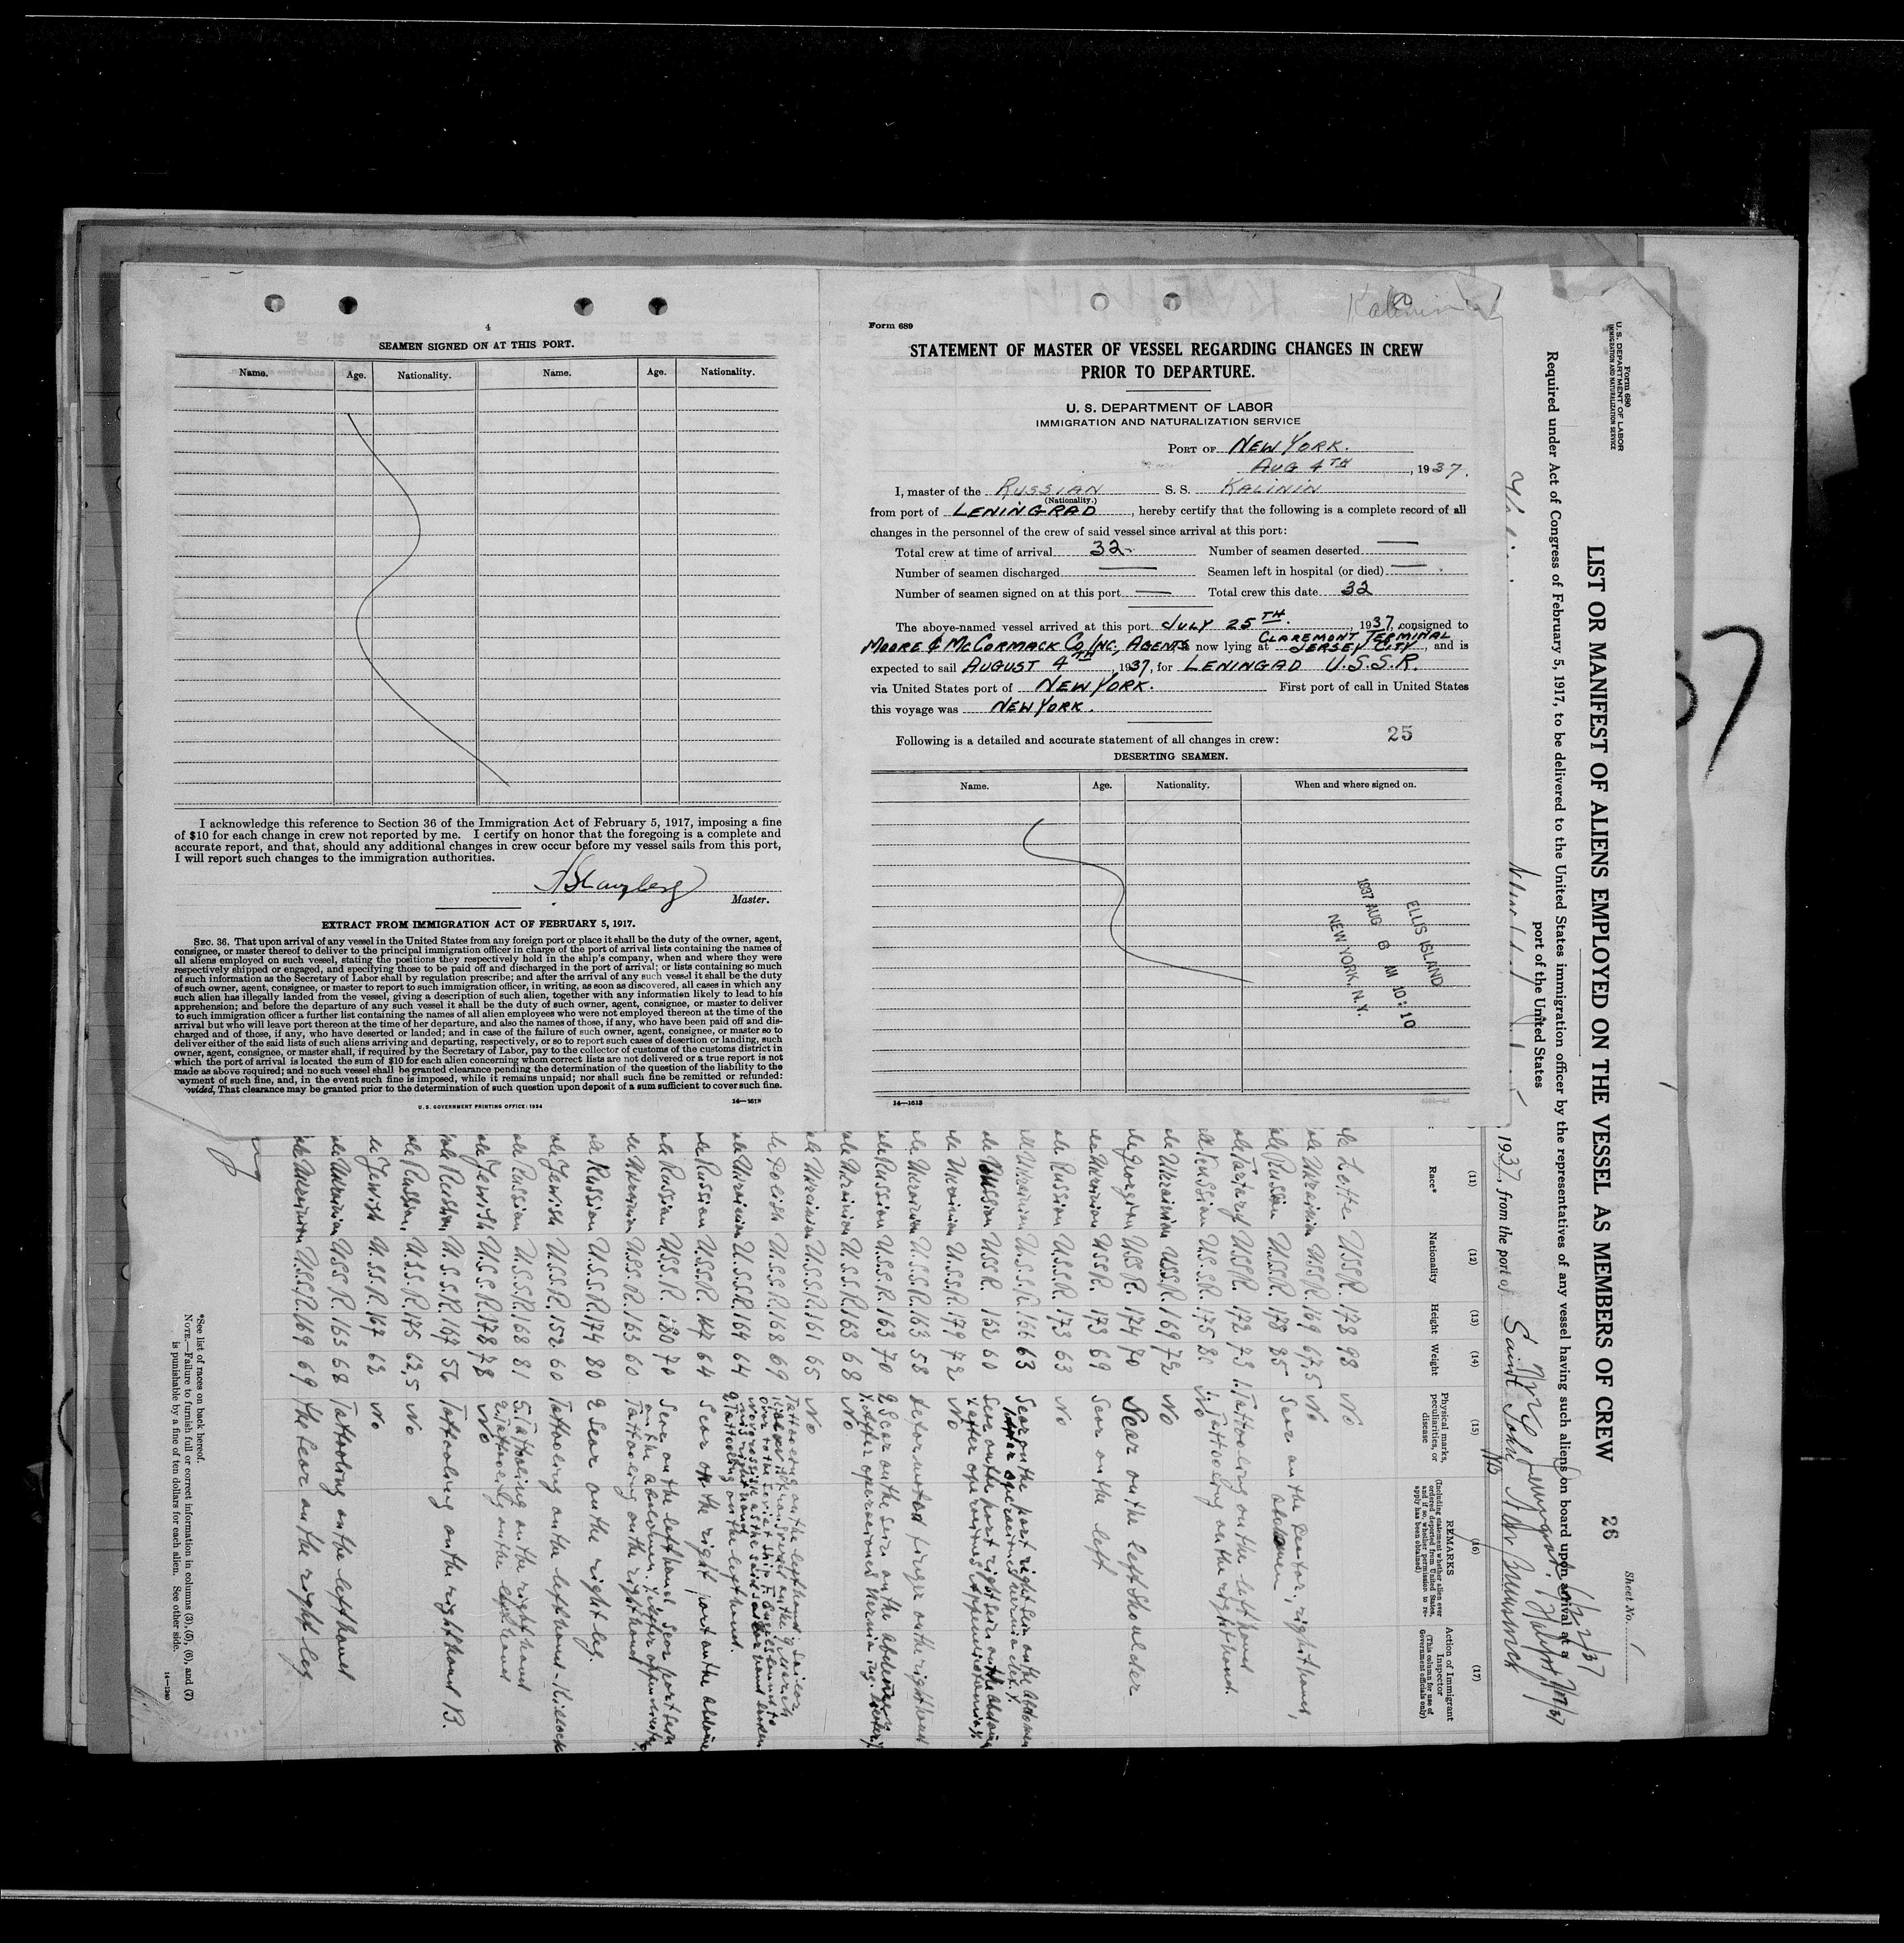 4
SEAMEN SIGNED ON AT THIS PORT.
Name. Age. Nationality. Name. Age. Nationality.
I acknowledge this reference to Section 36 of the Immigration Act of February 5, 1917, imposing a fine
of $10 for each change in crew not reported by me. I certify on honor that the foregoing is a complete and
accurate report, and that, should any additional changes in crew occur before my vessel sails from this port,
I will report such changes to the immigration authorities.
Master.
EXTRACT FROM IMMIGRATION ACT OF FEBRUARY 5, 1917.
SEC. 36. That upon arrival of any vessel in the United States from any foreign port or place it shall be the duty of the owner, agent,
consignee, or master thereof to deliver to the principal immigration officer in charge of the port of arrival lists containing the names of
all aliens employed on such vessel, stating the positions they respectively hold in the ship's company, when and where they were
respectively shipped or engaged, and specifying those to be paid off and discharged in the port of arrival; or lists containing so much
of such information as the Secretary of Labor shall by regulation prescribe; and after the arrival of any such vessel it shall be the duty
of such owner, agent, consignee, or master to report to such immigration officer, in writing, as soon as discovered, all cases in which any
such alien has illegally landed from the vessel, giving a description of such alien, together with any information likely to lead to his
apprehension; and before the departure of any such vessel it shall be the duty of such owner, agent, consignee, or master to deliver
to such immigration officer a further list containing the names of all alien employees who were not employed thereon at the time of the
arrival but who will leave port thereon at the time of her departure, and also the names of those, if any, who have been paid off and dis-
charged and of those, if any, who have deserted or landed; and in case of the failure of such owner, agent, consignee, or master so to
deliver either of the said lists of such aliens arriving and departing, respectively, or so to report such cases of desertion or landing, such
owner, agent, consignee, or master shall, if required by the Secretary of Labor, pay to the collector of customs of the customs district in
which the port of arrival is located the sum of $10 for each alien concerning whom correct lists are not delivered or a true report is not
made as above required; and no such vessel shall be granted clearance pending the determination of the question of the liability to the
ayment of such fine, and, in the event such fine is imposed, while it remains unpaid; nor shall such fine be remitted or refunded:
ovided, That clearance may be granted prior to the determination of such question upon deposit of a sum sufficient to cover such fine.
U. S. GOVERNMENT PRINTING OFFICE: 1934
Kalinin
Form 689
STATEMENT OF MASTER OF VESSEL REGARDING CHANGES IN CREW
PRIOR TO DEPARTURE.
U. S. DEPARTMENT OF LABOR
IMMIGRATION AND NATURALIZATION SERVICE
PORT OF NEW YORK.
AUG 4TH, 1937.
I, master of the RUSSIAN S. S. KALININ
(Nationality.)
from port of LENINGRAD, hereby certify that the following is a complete record of all
changes in the personnel of the crew of said vessel since arrival at this port:
Total crew at time of arrival 32 Number of seamen deserted —
Number of seamen discharged — Seamen left in hospital (or died) —
Number of seamen signed on at this port — Total crew this date 32
The above-named vessel arrived at this port JULY 25TH, 1937, consigned to
MOORE & McCORMACK CO INC, AGENTS now lying at CLAREMONT TERMINAL JERSEY CITY, and is
expected to sail AUGUST 4TH, 1937, for LENINGAD U.S.S.R.
via United States port of NEW YORK. First port of call in United States
this voyage was NEW YORK.
Following is a detailed and accurate statement of all changes in crew: 25
DESERTING SEAMEN.
Name. Age. Nationality. When and where signed on.
ELLIS ISLAND
1937 AUG 6 AM 10:10
NEW YORK, N.Y.
14—1513
Form 680
U. S. DEPARTMENT OF LABOR
IMMIGRATION AND NATURALIZATION SERVICE
Sheet No. 1
LIST OR MANIFEST OF ALIENS EMPLOYED ON THE VESSEL AS MEMBERS OF CREW 26
Required under Act of Congress of February 5, 1917, to be delivered to the United States immigration officer by the representatives of any vessel having such aliens on board upon arrival at a
port of the United States
1937, from the port of Saint John
(11) (12) (13) (14) (15) (16) (17)
Race* Nationality Height Weight
Physical marks, peculiarities, or disease
REMARKS
(Including statement whether alien ever ordered deported from United States, and if so, whether permission to re-apply has been obtained)
Action of Immigrant Inspector
(This column for use of Government officials only)
Lette USSR. 178 98 No
Ukrainian USSR. 169 67,5 No
Russian U.S.S.R. 178 85
USSR. 172 73 1. Tattooing on the left hand
Russian U.S.S.R. 175 Tattooing on the right hand.
Ukrainian USSR. 169 72 No
Georgian USSR. 174 70 Scar on the left shoulder
Ukrainian USSR. 173 69 Scar on the left
Russian U.S.S.R. 173 63 No
Ukrainian U.S.S.R. 166 63
Russian USSR. 162 60
Ukrainian U.S.S.R. 179 72 No
Ukrainian U.S.S.R. 163 58
Russian U.S.S.R. 163 70
Ukrainian U.S.S.R. 163 68 No
Ukrainian U.S.S.R. 161 65 No
Polish U.S.S.R. 168 69
Ukrainian U.S.S.R. 164 64
Russian U.S.S.R. 64
Russian U.S.S.R. 180 70
Ukrainian U.S.S.R. 163 60 Tattooing on the right hand
Russian U.S.S.R. 174 80 2 Scar on the right leg.
Jewish U.S.S.R. 152 60
Russian U.S.S.R. 168 81
Jewish U.S.S.R. 178 78 No
Russian U.S.S.R. 167 56 Tattooing on the right hand
Russian, U.S.S.R. 175 62,5 No
Jewish U.S.S.R. 167 62 No
Ukrainian USSR. 163 68 Tattooing on the left hand
Ukrainian U.S.S.R. 169 69 The scar on the right leg
*See list of races on back hereof.
NOTE.—Failure to furnish full or correct information in columns (3), (5), (6), and (7)
is punishable by a fine of ten dollars for each alien. See other side.
14—1240